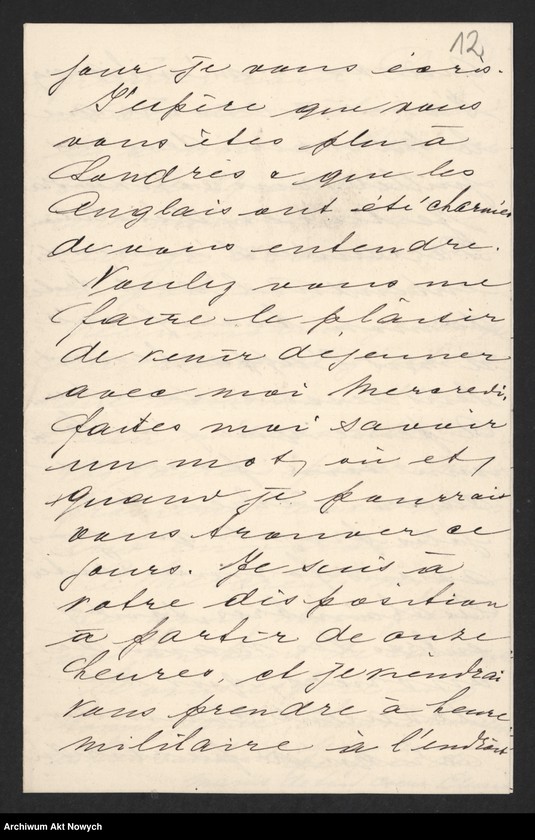 12
jour je vous écris.
J'espère que vous
vous êtes plu à
Londres e que les
Anglais ont été charmés
de vous entendre.
Voulez vous me
faire le plaisir
de venir déjeuner
avec moi Mercredi,
faites moi savoir
un mot, où et,
quand je pourrais
vous trouver ce
jours. Je suis à
votre disposition
à partir de onze
heures, et je viendrai
vous prendre à heure
militaire à l'endroit
Archiwum Akt Nowych